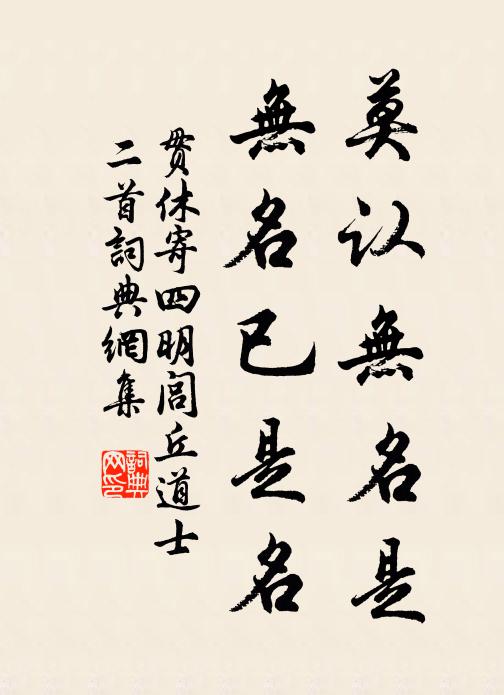 莫认無名是
無名已是名
貫休寄四明閭丘道士
二首詞典網集
詞典
网印